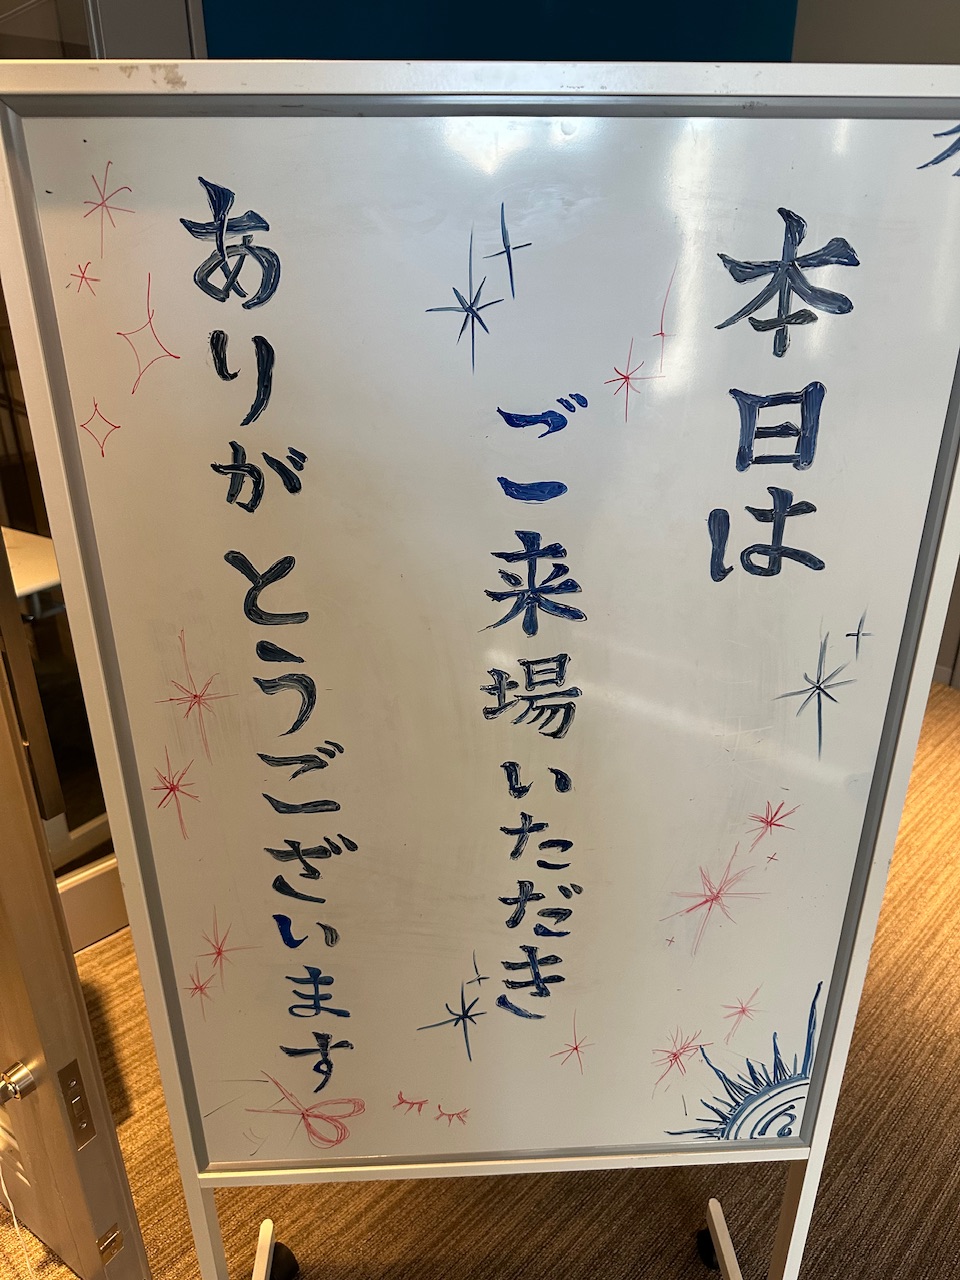 本日は
ご来場いただき
ありがとうございます